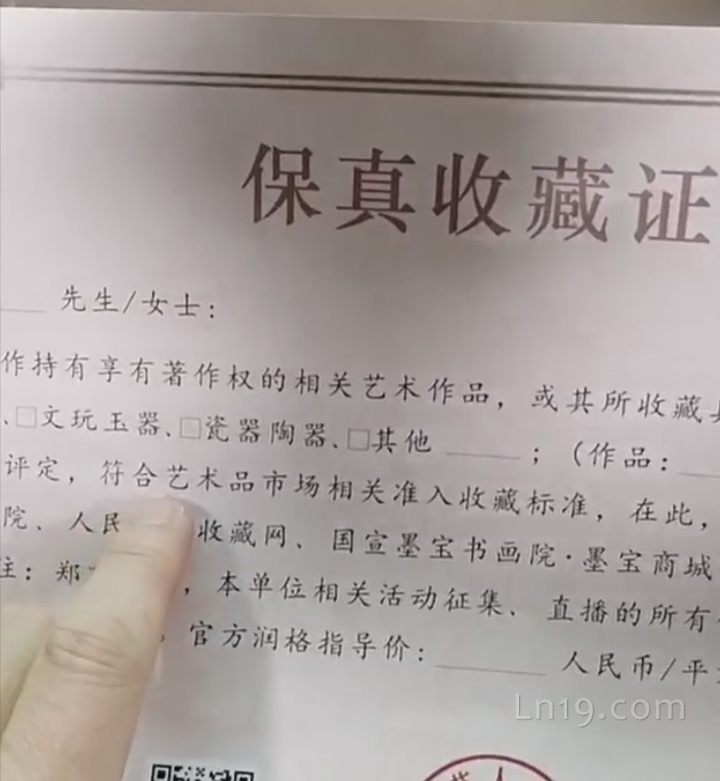 保真收藏证
先生/女士：
作持有享有著作权的相关艺术作品，或其所收藏
、□文玩玉器、□瓷器陶器、□其他______；（作品：
评定，符合艺术品市场相关准入收藏标准，在此，
院、人民 收藏网、国宣墨宝书画院·墨宝商城
注：郑 ，本单位相关活动征集、直播的所有
。官方润格指导价：______人民币/平
Ln19.com
人